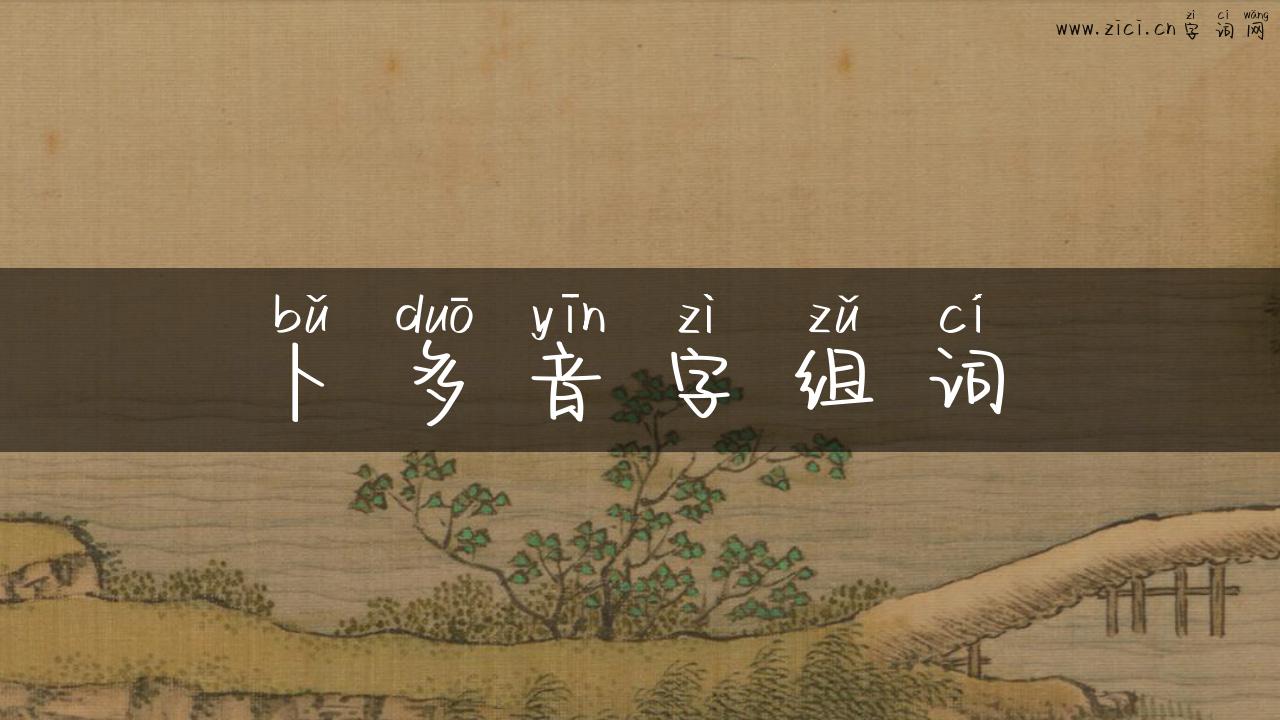 zì cí wǎng
www.zici.cn字词网
bǔ duō yīn zì zǔ cí
卜多音字组词